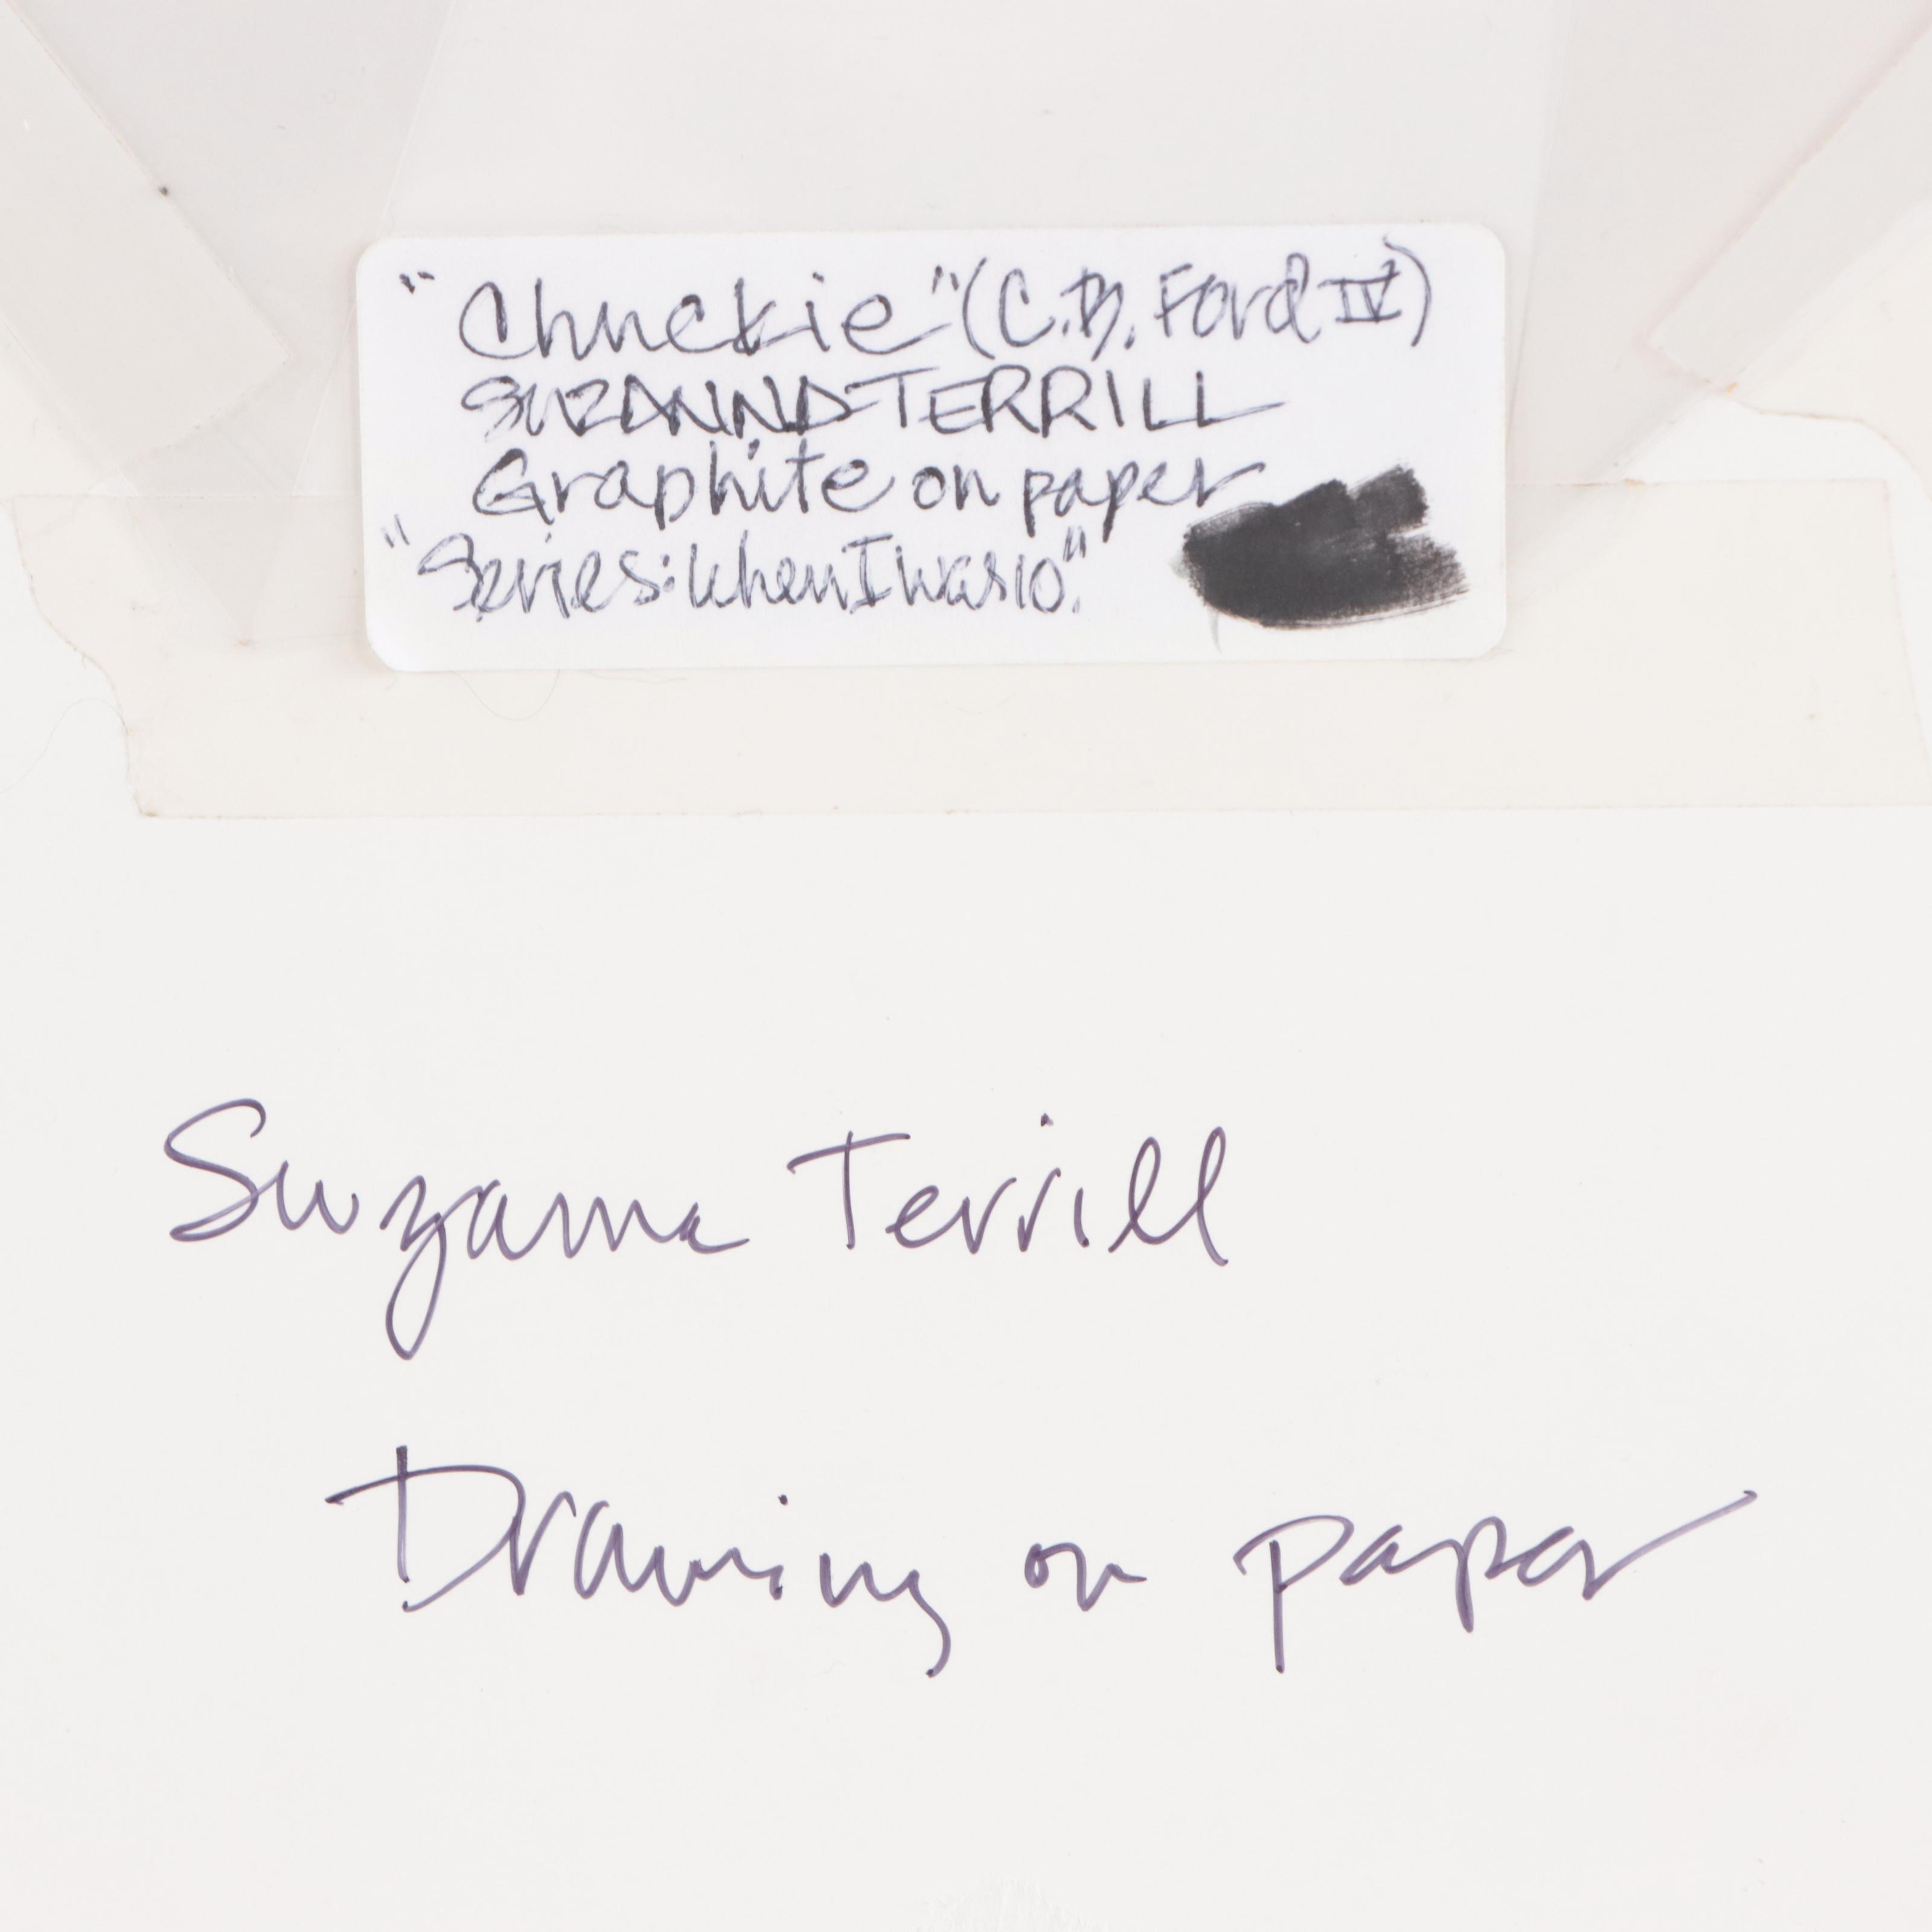 "Chuckie" (C.B. Ford IV)
SUZANNA TERRILL
Graphite on paper
"Series: When I was 10"
Suzanna Terrill
Drawing on paper